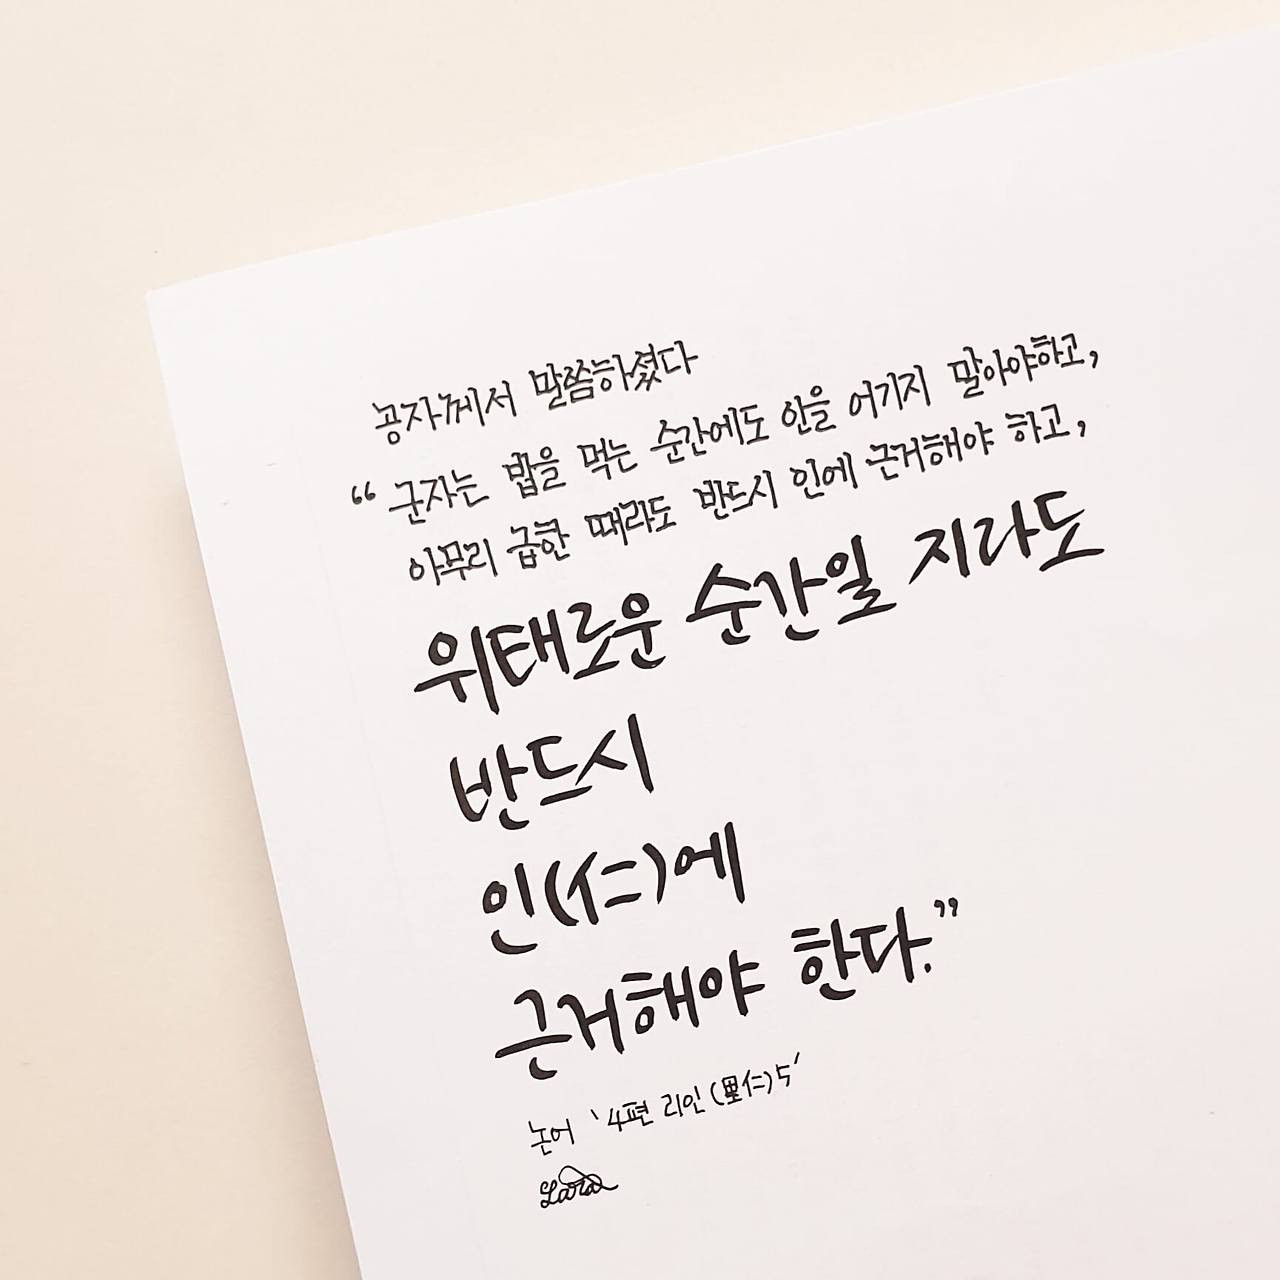 공자께서 말씀하셨다
“ 군자는 밥을 먹는 순간에도 인을 어기지 말아야하고,
아무리 급한 때라도 반드시 인에 근거해야 하고,
위태로운 순간일 지라도
반드시
인(仁)에
근거해야 한다.”
논어 ‘4편 리인(里仁)5’
Lara